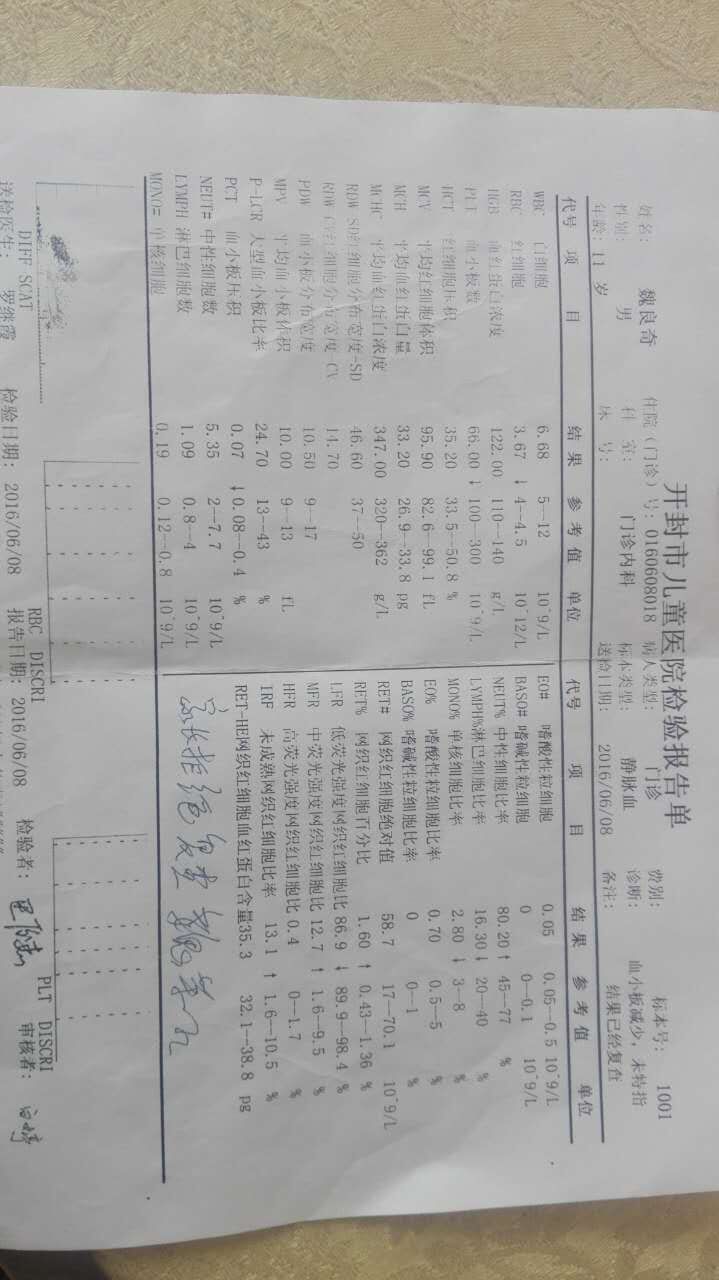 开封市儿童医院检验报告单
标本号: 1001
姓名: 魏良奇 住院(门诊)号: 0160608018 病人类型: 门诊 费别:
性别: 男 科 室: 门诊内科 标本类型: 静脉血 诊断: 血小板减少, 未特指
年龄: 11 岁 床 号: 送检日期: 2016/06/08 备注: 结果已经复查
代号 项 目 结 果 参 考 值 单位 代号 项 目 结 果 参 考 值 单位
WBC 白细胞 6.68 5--12 10^9/L EO# 嗜酸性粒细胞 0.05 0.05--0.5 10^9/L
RBC 红细胞 3.67 ↓ 4--4.5 10^12/L BASO# 嗜碱性粒细胞 0 0--0.1 10^9/L
HGB 血红蛋白浓度 122.00 110--140 g/L NEUT% 中性细胞比率 80.20 ↑ 45--77 %
PLT 血小板数 66.00 ↓ 100--300 10^9/L LYMPH%淋巴细胞比率 16.30 ↓ 20--40 %
HCT 红细胞压积 35.20 33.5--50.8 % MONO% 单核细胞比率 2.80 ↓ 3--8 %
MCV 平均红细胞体积 95.90 82.6--99.1 fL EO% 嗜酸性粒细胞比率 0.70 0.5--5 %
MCH 平均血红蛋白量 33.20 26.9--33.8 pg BASO% 嗜碱性粒细胞比率 0 0--1 %
MCHC 平均血红蛋白浓度 347.00 320--362 g/L RET# 网织红细胞绝对值 58.7 17--70.1 10^9/L
RDW-SD红细胞分布宽度-SD 46.60 37--50 RET% 网织红细胞百分比 1.60 ↑ 0.43--1.36 %
RDW-CV红细胞分布宽度-CV 14.70 LFR 低荧光强度网织红细胞比 86.9 ↓ 89.9--98.4 %
PDW 血小板分布宽度 10.50 9--17 MFR 中荧光强度网织红细胞比 12.7 ↑ 1.6--9.5 %
MPV 平均血小板体积 10.00 9--13 fL HFR 高荧光强度网织红细胞比 0.4 0--1.7 %
P-LCR 大型血小板比率 24.70 13--43 % IRF 未成熟网织红细胞比率 13.1 ↑ 1.6--10.5 %
PCT 血小板压积 0.07 ↓ 0.08--0.4 % RET-HE网织红细胞血红蛋白含量35.3 32.1--38.8 pg
NEUT# 中性细胞数 5.35 2--7.7 10^9/L
LYMPH 淋巴细胞数 1.09 0.8--4 10^9/L
MONO# 单核细胞 0.19 0.12--0.8 10^9/L
家长拒绝复查
DIFF SCAT RBC DISCRI PLT DISCRI
送检医生: 罗继霞 检验日期: 2016/06/08 报告日期: 2016/06/08 检验者: 审核者: